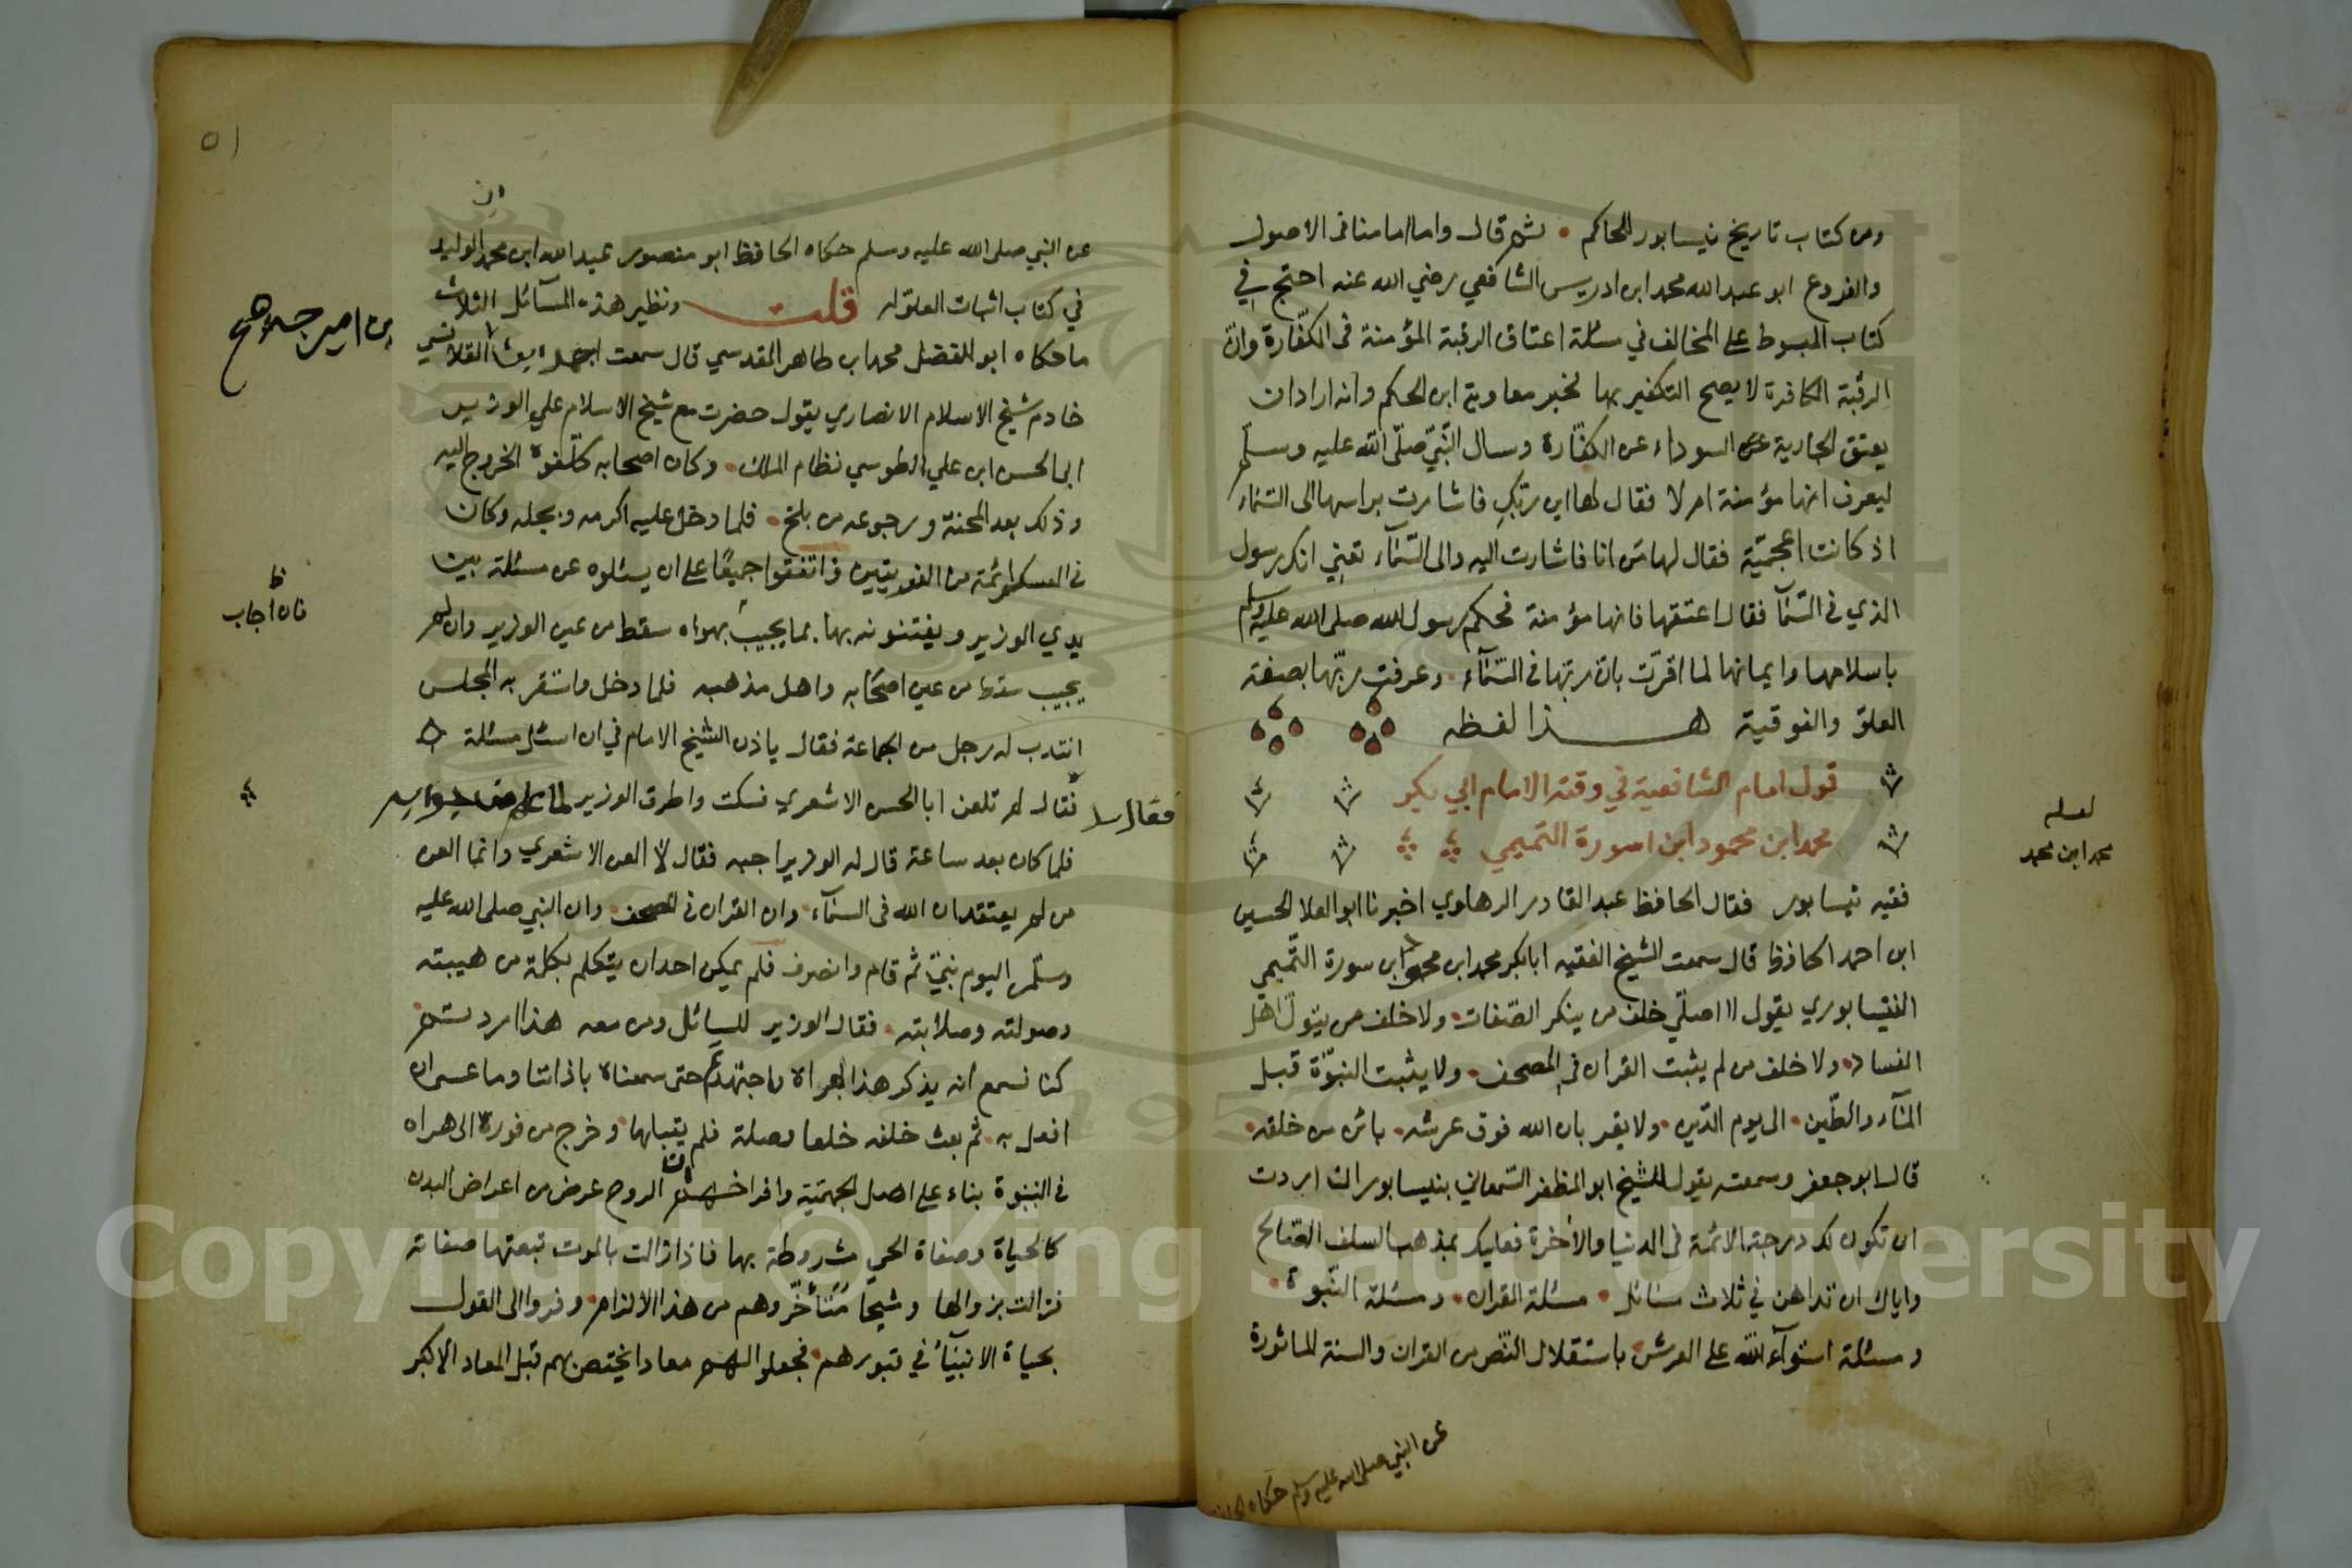 ومن كتاب تاريخ نيسابور للحاكم • ثم قال واما امامنا فى الاصول
والفروع ابو عبد الله محمد ابن ادريس الشافعي رضي الله عنه احتج في
كتاب المبسوط على المخالف في مسئلة اعتاق الرقبة المؤمنة فى الكفّارة وانّ
الرقبة الكافرة لا يصح التكفير بها لخبر معاوية ابن الحكم وانه اراد ان
يعتق الجارية السوداء عن الكفّارة وسال النّبيّ صلّى الله عليه وسلّم
ليعرف انها مؤمنة ام لا فقال لها اين ربّكِ فاشارت براسها الى السّماء
اذ كانت اعجميّة فقال لها من انا فاشارت اليه والى السّمآء تعني انك رسول
الذي فى السّمآ فقال اعتقها فانها مؤمنة فحكم رسول الله صلى الله عليه وسلم
باسلامها وايمانها لما اقرّت بانّ ربّها فى السّمآء • وعرفت ربّها بصفته
العلو والفوقية هذا لفظه
قول امام الشافعية في وقته الامام ابي بكر
محمد ابن محمود ابن سورة التميمي
لعله
محمد ابن محمد
فقيه نيسابور فقال الحافظ عبد القادر الرهاوي اخبرنا ابو العلا الحسين
ابن احمد الحافظ قال سمعت الشيخ الفقيه ابا بكر محمد ابن محمود ابن سورة التّميمي
النيسابوري يقول لا اصلّي خلف من ينكر الصّفات • ولا خلف من يتولّ اهل
الفساد • ولا خلف من لم يثبت القران فى المصحف • ولا يثبت النبوّة قبل
المآء والطّين • الى يوم الدّين • ولا يقر بان الله فوق عرشه • بائن من خلقه •
قال ابو جعفر وسمعته يقول للشيخ ابو المظفر السّمعاني بنيسابور ان اردت
ان تكون لك درجة الائمة فى الدنيا والأخرة فعليك بمذهب السلف الصّالح
واياك ان تداهن في ثلاث مسائل • مسئلة القران • ومسئلة النّبوة •
ومسئلة استوآء الله على العرش • باستقلال النّص من القران والسنة الماثورة
عن النبي صلى الله عليه وسلم حكاه
٥١
عن النبي صلى الله عليه وسلم حكاه الحافظ ابو منصور عبد الله ابن محمد الوليد
في كتاب اثبات العلو له قلت ونظير هذه المسآئل الثلاث
ما حكاه ابو الفضل محمد اب طاهر المقدسي قال سمعت القلانسي
بن اميرجه
خادم شيخ الاسلام الانصاري يقول حضرت مع شيخ الاسلام علي الوزير
ابى الحسن ابن علي الطوسي نظام الملك • وكان اصحابه كلّفوه الخروج اليه
وذلك بعد المحنة ورجوعه من بلخ • فلما دخل عليه اكرمه وبجله وكان
فى العسكر ائمة من الفريقين فاتفقوا جميعًا على ان يسئلوه عن مسئلة بين
يدي الوزير ويفتنونه بها بما يجيب بهراه سقط من عين الوزير وان لم
ظ
فان اجاب
يجيب سقط من عين اصحابه واهل مذهبه فلما دخل واستقر به المجلس
انتدب له رجل من الجماعة فقال ياذن الشيخ الامام في ان اسئل مسئلة
فقال سل
فقال لم تلعن ابا الحسن الاشعري فسكت واطرق الوزير لما علم من جوابه
فلما كان بعد ساعة قال له الوزير اجبه فقال لا العن الاشعري وانما العن
من لم يعتقد ان الله فى السمآء • وان القران فى المصحف • وان النبي صلى الله عليه
وسلّم اليوم نبيّ ثم قام وانصرف فلم يمكن احد ان يتكلم بكلمة من هيبته
وصولته وصلابته • فقال الوزير للسائل ومن معه هذا اردتم
كنا نسمع انه يذكر هذا بهراة فاجتهدتم حتى سمعناه باذاننا وما عسى ان
افعل به • ثم بعث خلفه خلعا وصلة فلم يقبلها • وخرج من فوره الى هراه
فى النبوة بناء على اصل الجهميّة وافراخهم ان الروح عرض من اعراض البدن
كالحياة وصفاة الحي مشروطة بها فاذا زالت بالموت تبعتها صفاته
فزالت بزوالها ونجا متأخّروهم من هذا الالزام • وفروا الى القول
بحياة الانبيآء في قبورهم • فجعلوا لهم معادا يختص بهم قبل المعاد الاكبر
Copyright © King Saud University
1957